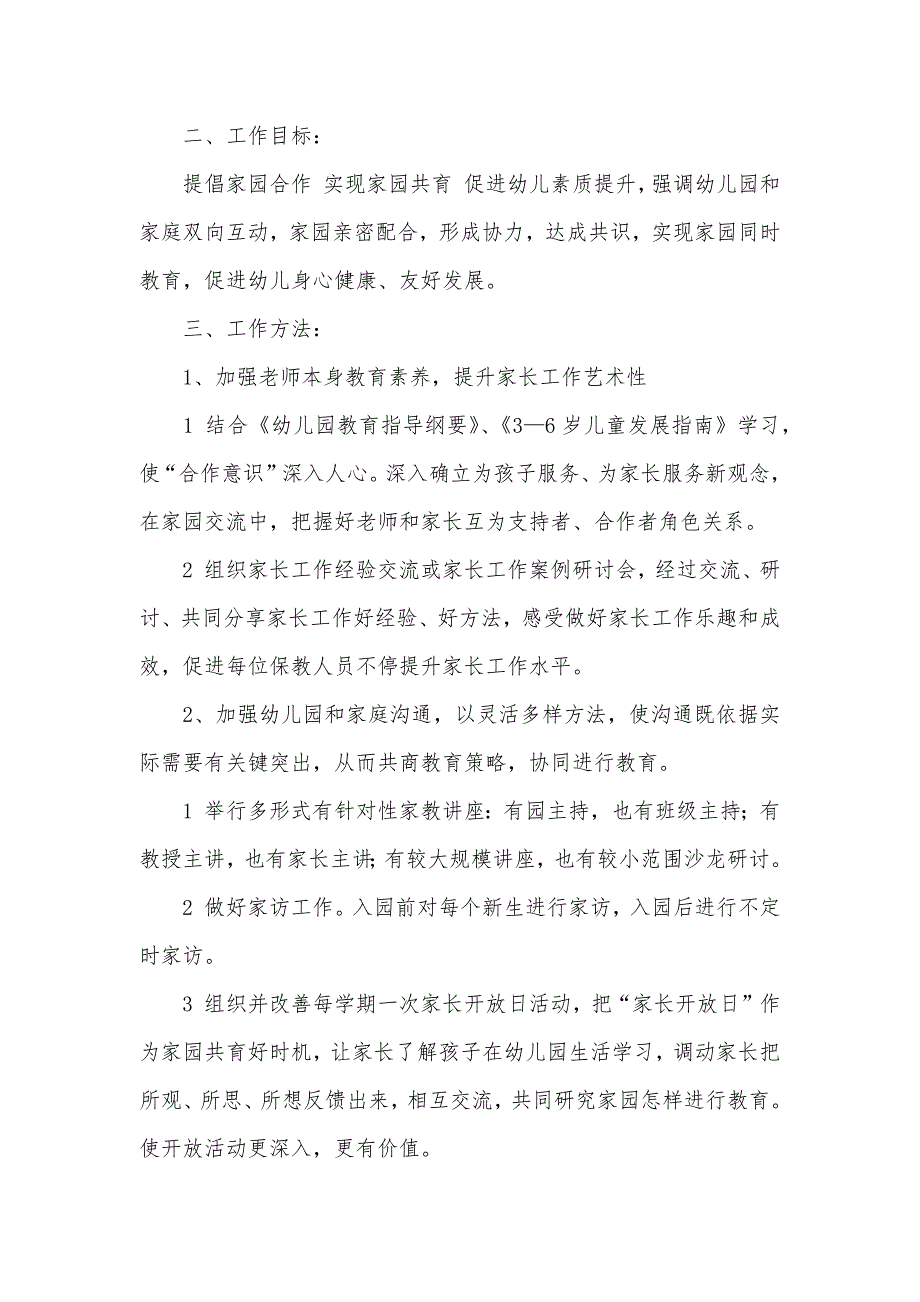 二、工作目标：
提倡家园合作 实现家园共育 促进幼儿素质提升，强调幼儿园和
家庭双向互动，家园亲密配合，形成协力，达成共识，实现家园同时
教育，促进幼儿身心健康、友好发展。
三、工作方法：
1、加强老师本身教育素养，提升家长工作艺术性
1 结合《幼儿园教育指导纲要》、《3—6 岁儿童发展指南》学习，
使“合作意识”深入人心。深入确立为孩子服务、为家长服务新观念，
在家园交流中，把握好老师和家长互为支持者、合作者角色关系。
2 组织家长工作经验交流或家长工作案例研讨会，经过交流、研
讨、共同分享家长工作好经验、好方法，感受做好家长工作乐趣和成
效，促进每位保教人员不停提升家长工作水平。
2、加强幼儿园和家庭沟通，以灵活多样方法，使沟通既依据实
际需要有关键突出，从而共商教育策略，协同进行教育。
1 举行多形式有针对性家教讲座：有园主持，也有班级主持；有
教授主讲，也有家长主讲；有较大规模讲座，也有较小范围沙龙研讨。
2 做好家访工作。入园前对每个新生进行家访，入园后进行不定
时家访。
3 组织并改善每学期一次家长开放日活动，把“家长开放日”作
为家园共育好时机，让家长了解孩子在幼儿园生活学习，调动家长把
所观、所思、所想反馈出来，相互交流，共同研究家园怎样进行教育。
使开放活动更深入，更有价值。